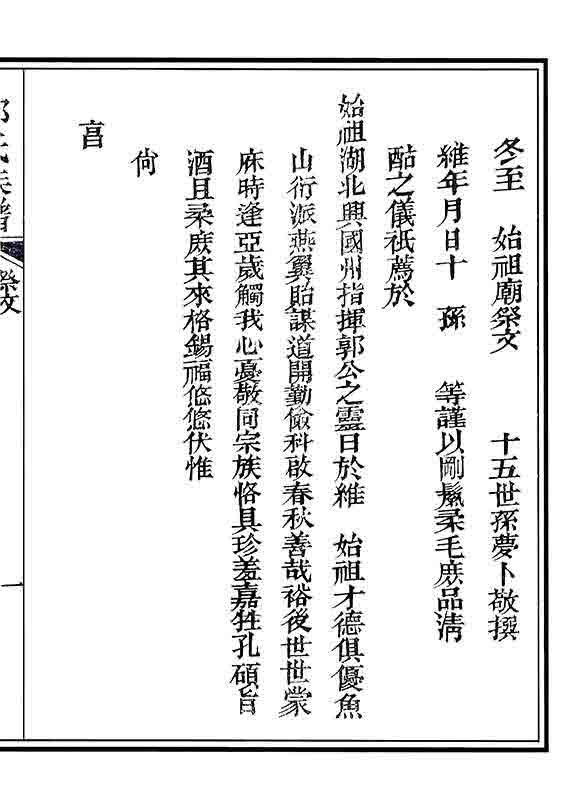 冬至 始祖廟祭文 十五世孫夢卜敬撰
維年月日十 孫 等謹以剛鬛柔毛庶品清
酤之儀祇薦於
始祖湖北興國州指揮郭公之靈日於維 始祖才德俱優魚
山衍派燕翼貽謀道開勤儉科啟春秋善哉裕後世世蒙
庥時逢亞歲觸我心憂敬同宗族恪具珍羞嘉牲孔碩旨
酒且柔庶其來格錫福悠悠伏惟
尙
亯
氏族譜
祭文
一